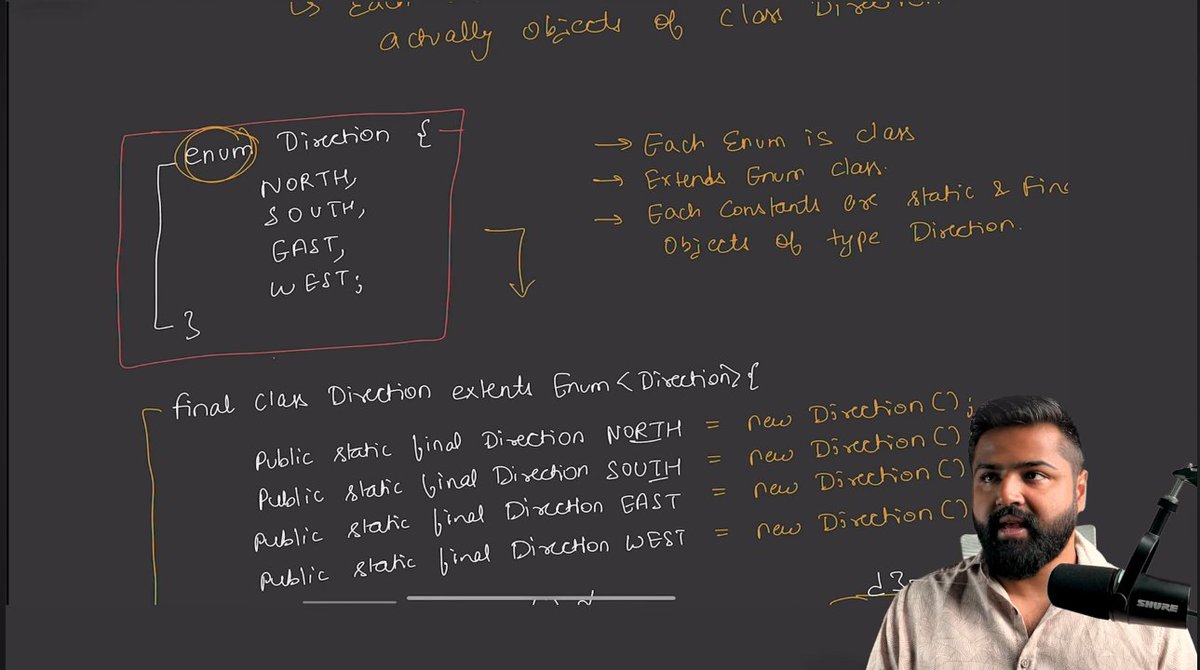 ↳ Each
actually objects of class Direction
enum Direction {
NORTH,
SOUTH,
EAST,
WEST;
}
→ Each Enum is class
→ Extends Enum class.
→ Each constants are static & fin
objects of type Direction.
final class Direction extents Enum <Direction> {
Public static final Direction NORTH = new Direction();
Public static final Direction SOUTH = new Direction()
Public static final Direction EAST = new Direction()
Public static final Direction WEST = new Direction()
d3
SHURE